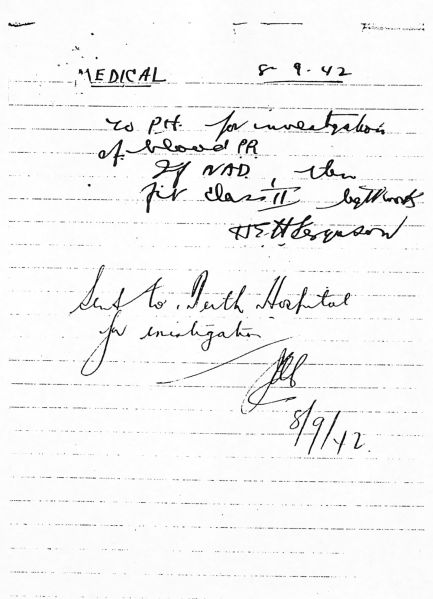 MEDICAL 8.9.42
To P.H. for investigation
of blood PR
If NAD, then
fit class II light work
H E H Ferguson
Sent to Perth Hospital
for investigation
8/9/42.